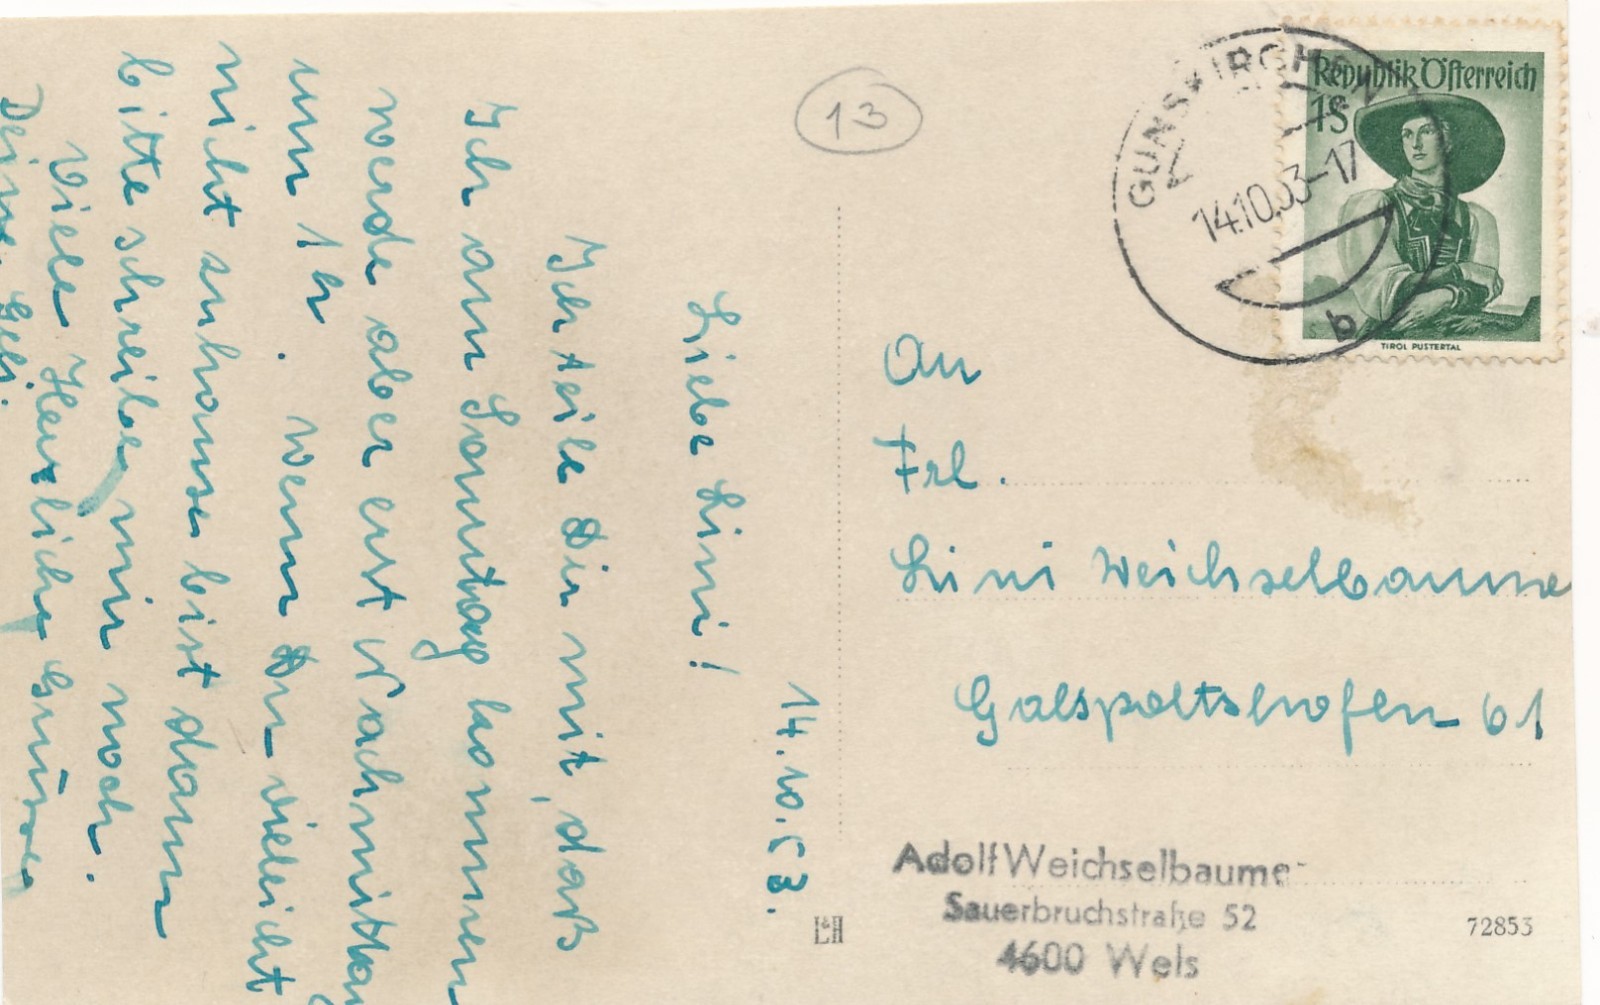 14.10.53.
Liebe Lini!
Ich teile Dir mit, daß
Ich am Sonntag kommen
werde aber erst Nachmittag
um 1h. wenn Du vieleicht
nicht zuhause bist dann
bitte schreibe mir noch.
Viele Herzliche Grüsse
Deine
13
GUNSKIRCHEN
14.10.53-17
b
Republik Österreich
1S
TIROL PUSTERTAL
An
Frl.
Lini Weichselbaume
Galspoltshofen 61
Adolf Weichselbaumer
Sauerbruchstraße 52
4600 Wels
L&H
72853